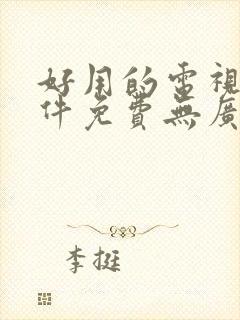 好用的電視
件免費無廣
李挺